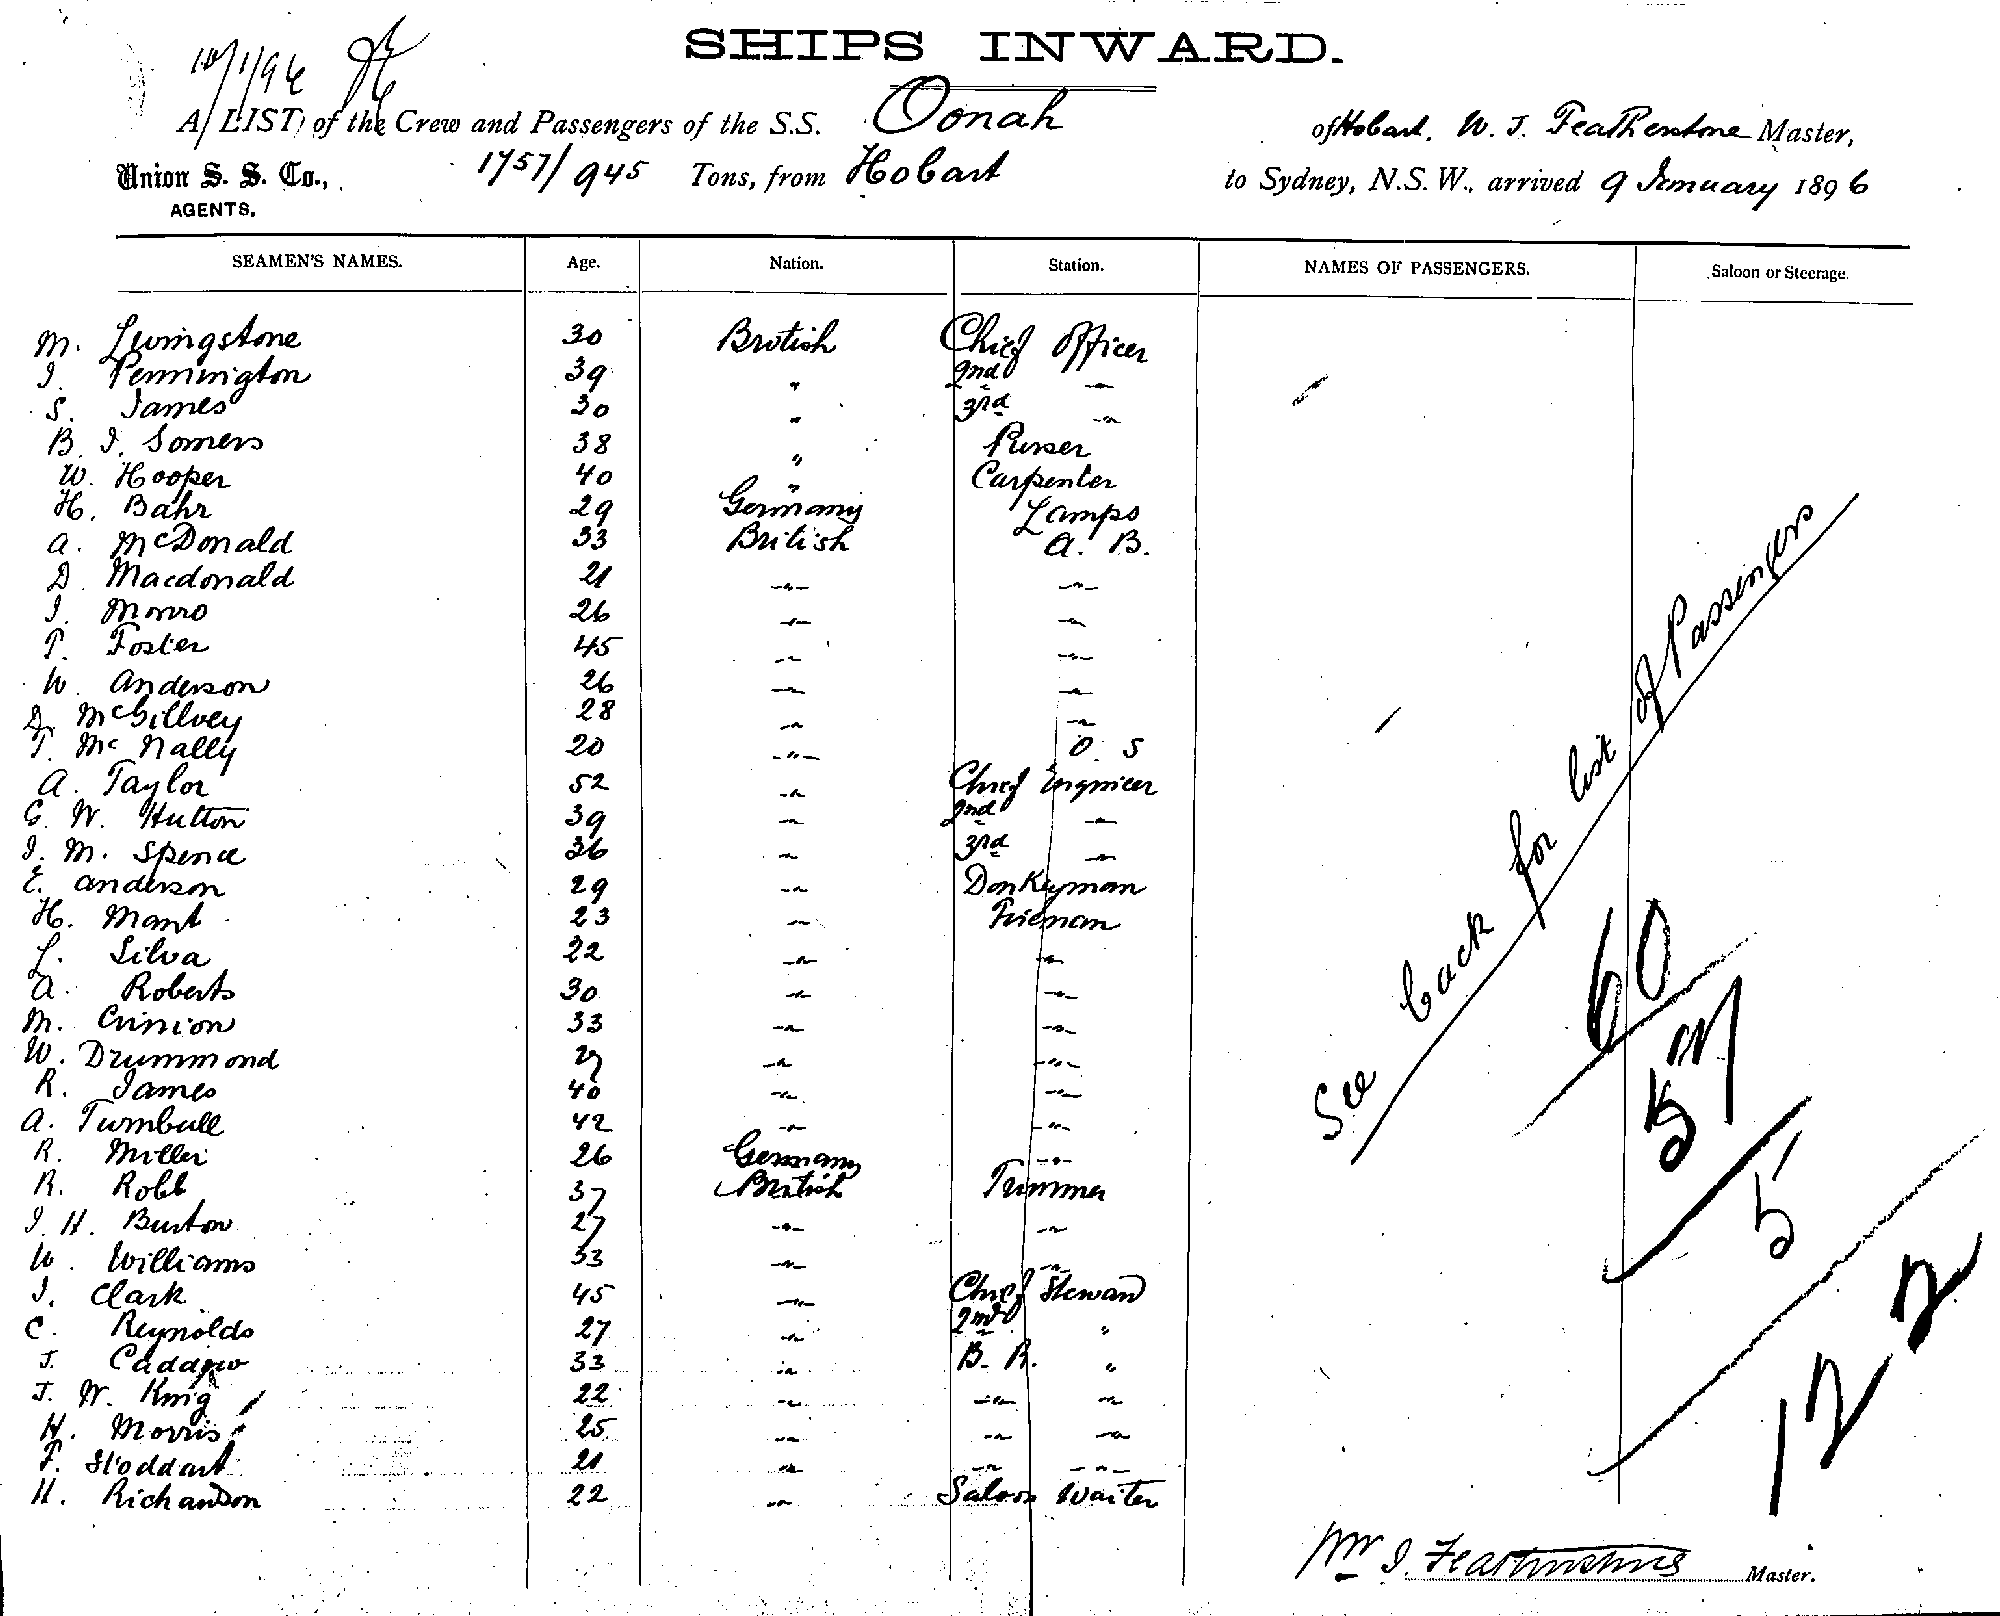 10/1/96
SHIPS INWARD.
A LIST of the Crew and Passengers of the S.S. Oonah of Hobart, W. J. Featherstone Master,
Union S. S. Co., 1757/945 Tons, from Hobart to Sydney, N.S.W., arrived 9 January 1896
AGENTS.
SEAMEN'S NAMES. Age. Nation. Station. NAMES OF PASSENGERS. Saloon or Steerage.
M. Livingstone 30 British Chief Officer
J. Pennington 39 " 2nd "
S. James 30 " 3rd "
B. J. Somers 38 " Purser
W. Hooper 40 " Carpenter
H. Bahr 29 Germany Lamps
A. McDonald 33 British A. B.
D. Macdonald 21 " "
J. Monro 26 " "
T. Foster 45 " "
W. Anderson 26 " "
D. McGillvey 28 " "
T. McNally 20 " O. S
A. Taylor 52 " Chief Engineer
G. W. Hutton 39 " 2nd "
J. M. Spence 36 " 3rd "
E. Anderson 29 " Donkeyman
H. Mant 23 " Fireman
L. Silva 22 " "
A. Roberts 30 " "
M. Crinion 33 " "
W. Drummond 27 " "
R. James 40 " "
A. Turnbull 42 " "
R. Miller 26 Germany "
R. Robb 37 British Trimmer
J. H. Burton 27 " "
W. Williams 33 " "
J. Clark 45 " Chief Steward
C. Reynolds 27 " 2nd "
J. 33 " B. R. "
J. W. King 22 " " "
H. Morris 25 " " "
F. Stoddart 21 " " "
H. Richardson 22 " Saloon Waiter
See back for list of Passengers
60
57
5
122
Wm J. Featherstone Master.